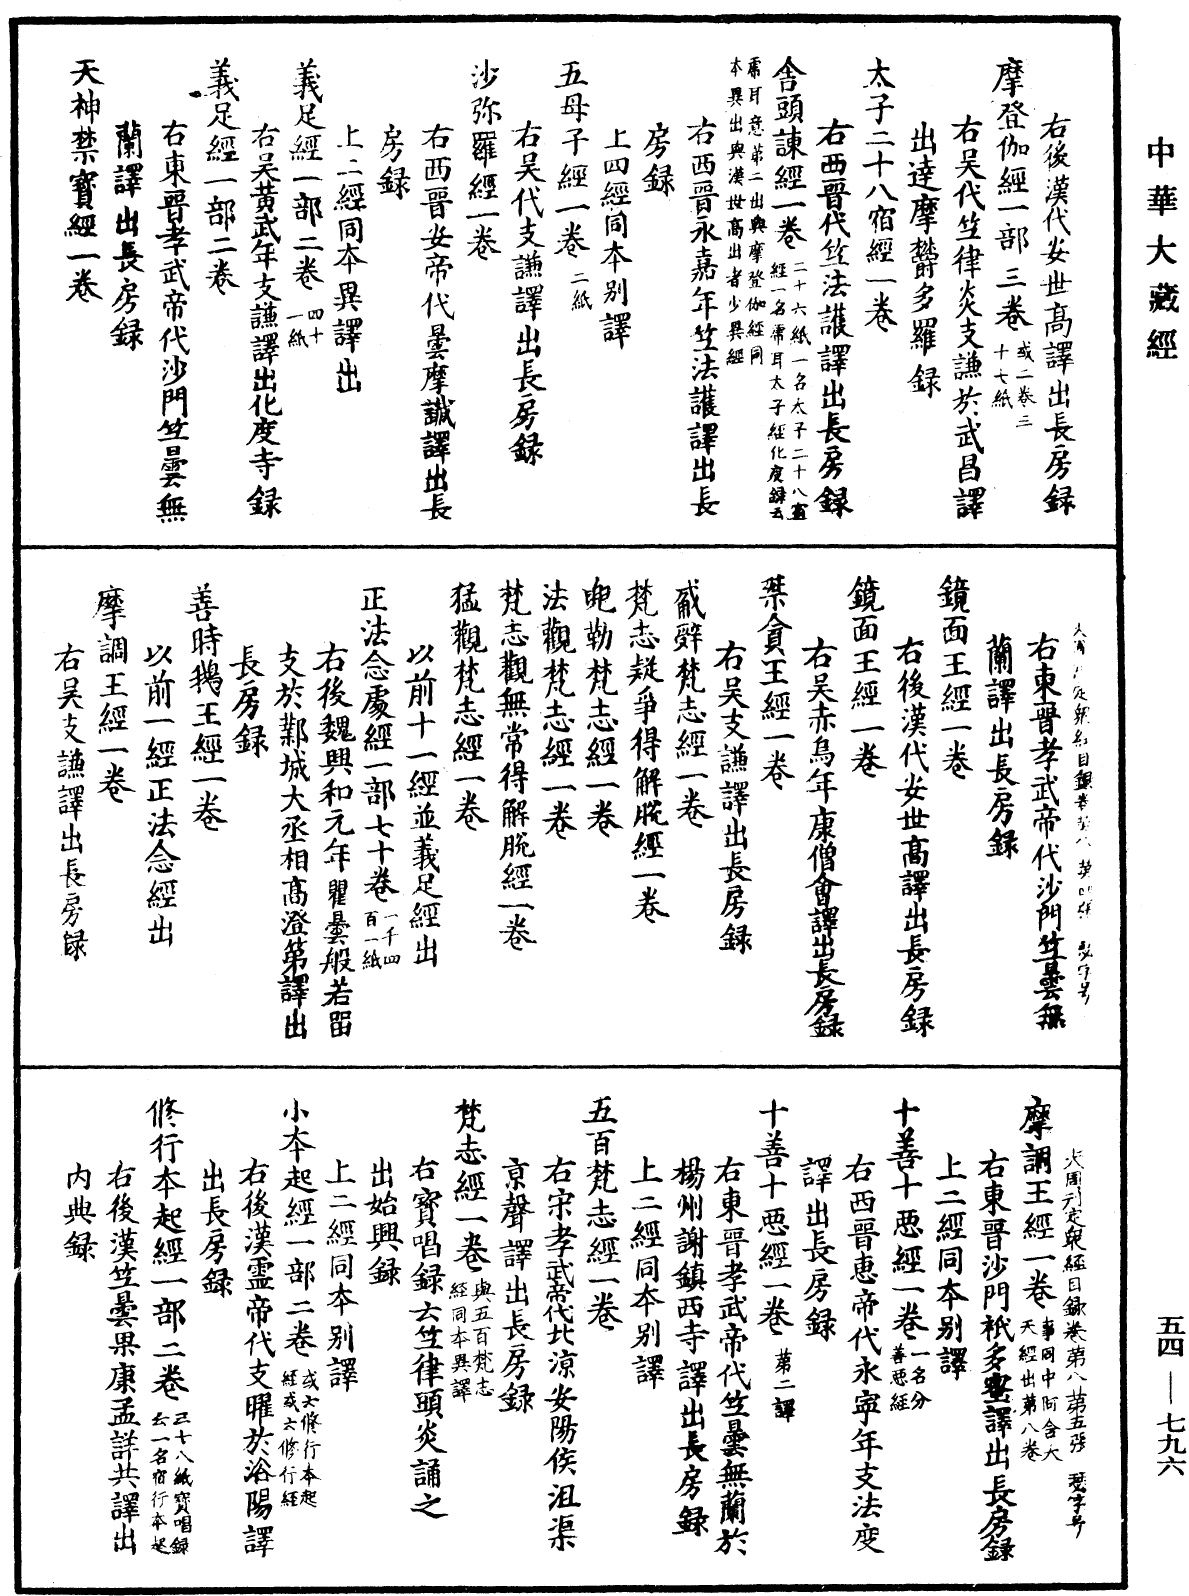 中華大藏經
右後漢代安世高譯出長房録
摩登伽經一部三卷 或二卷三十七紙
右吴代竺律炎支謙於武昌譯
出達摩欝多羅録
太子二十八宿經一卷
右西晋代竺法護譯出長房録
舎頭諫經一卷 二十六紙一名太子二十八宿經一名虎耳太子經化度録云
虎耳意第二出與摩登伽經同本異出與漢世高出者少異經
右西晋永嘉年竺法護譯出長
房録
上四經同本别譯
五母子經一卷 二紙
右吴代支謙譯出長房録
沙弥羅經一卷
右西晋安帝代曇摩讖譯出長
房録
上二經同本異譯出
義足經一部二卷 四十一紙
右吴黃武年支謙譯出化度寺録
義足經一部二卷
右東晋孝武帝代沙門竺曇無
蘭譯出長房録
天神禁寶經一卷
右東晋孝武帝代沙門竺曇無
蘭譯出長房録
鏡面王經一卷
右後漢代安世高譯出長房録
鏡面王經一卷
右吴赤烏年康僧會譯出長房録
桀貪王經一卷
右吴支謙譯出長房録
勇辭梵志經一卷
梵志疑爭得解脫經一卷
兜勒梵志經一卷
法觀梵志經一卷
梵志觀無常得解脫經一卷
猛觀梵志經一卷
以前十一經並義足經出
正法念處經一部七十卷 一千四百一紙
右後魏興和元年瞿曇般若留
支於鄴城大丞相高澄第譯出
長房録
善時鵝王經一卷
以前一經正法念經出
摩調王經一卷
右吴支謙譯出長房録
大周刊定衆經目録卷第八 第五張
摩調王經一卷 事同中阿含大天經出第八卷
右東晋沙門祇多蜜譯出長房録
上二經同本别譯
十善十惡經一卷 一名分善惡經
右西晋惠帝代永寧年支法度
譯出長房録
十善十惡經一卷 第二譯
右東晋孝武帝代竺曇無蘭於
楊州謝鎮西寺譯出長房録
上二經同本别譯
五百梵志經一卷
右宋孝武帝代北涼安陽侯沮渠
京聲譯出長房録
梵志經一卷 與五百梵志經同本異譯
右寶唱録云竺律頭炎誦之
出始興録
上二經同本别譯
小本起經一部二卷 或云修行本起經或云修行經
右後漢靈帝代支曜於洛陽譯
出長房録
修行本起經一部二卷 三十八紙寶唱録云一名宿行本起
右後漢竺曇果康孟詳共譯出
内典録
五四——七九六